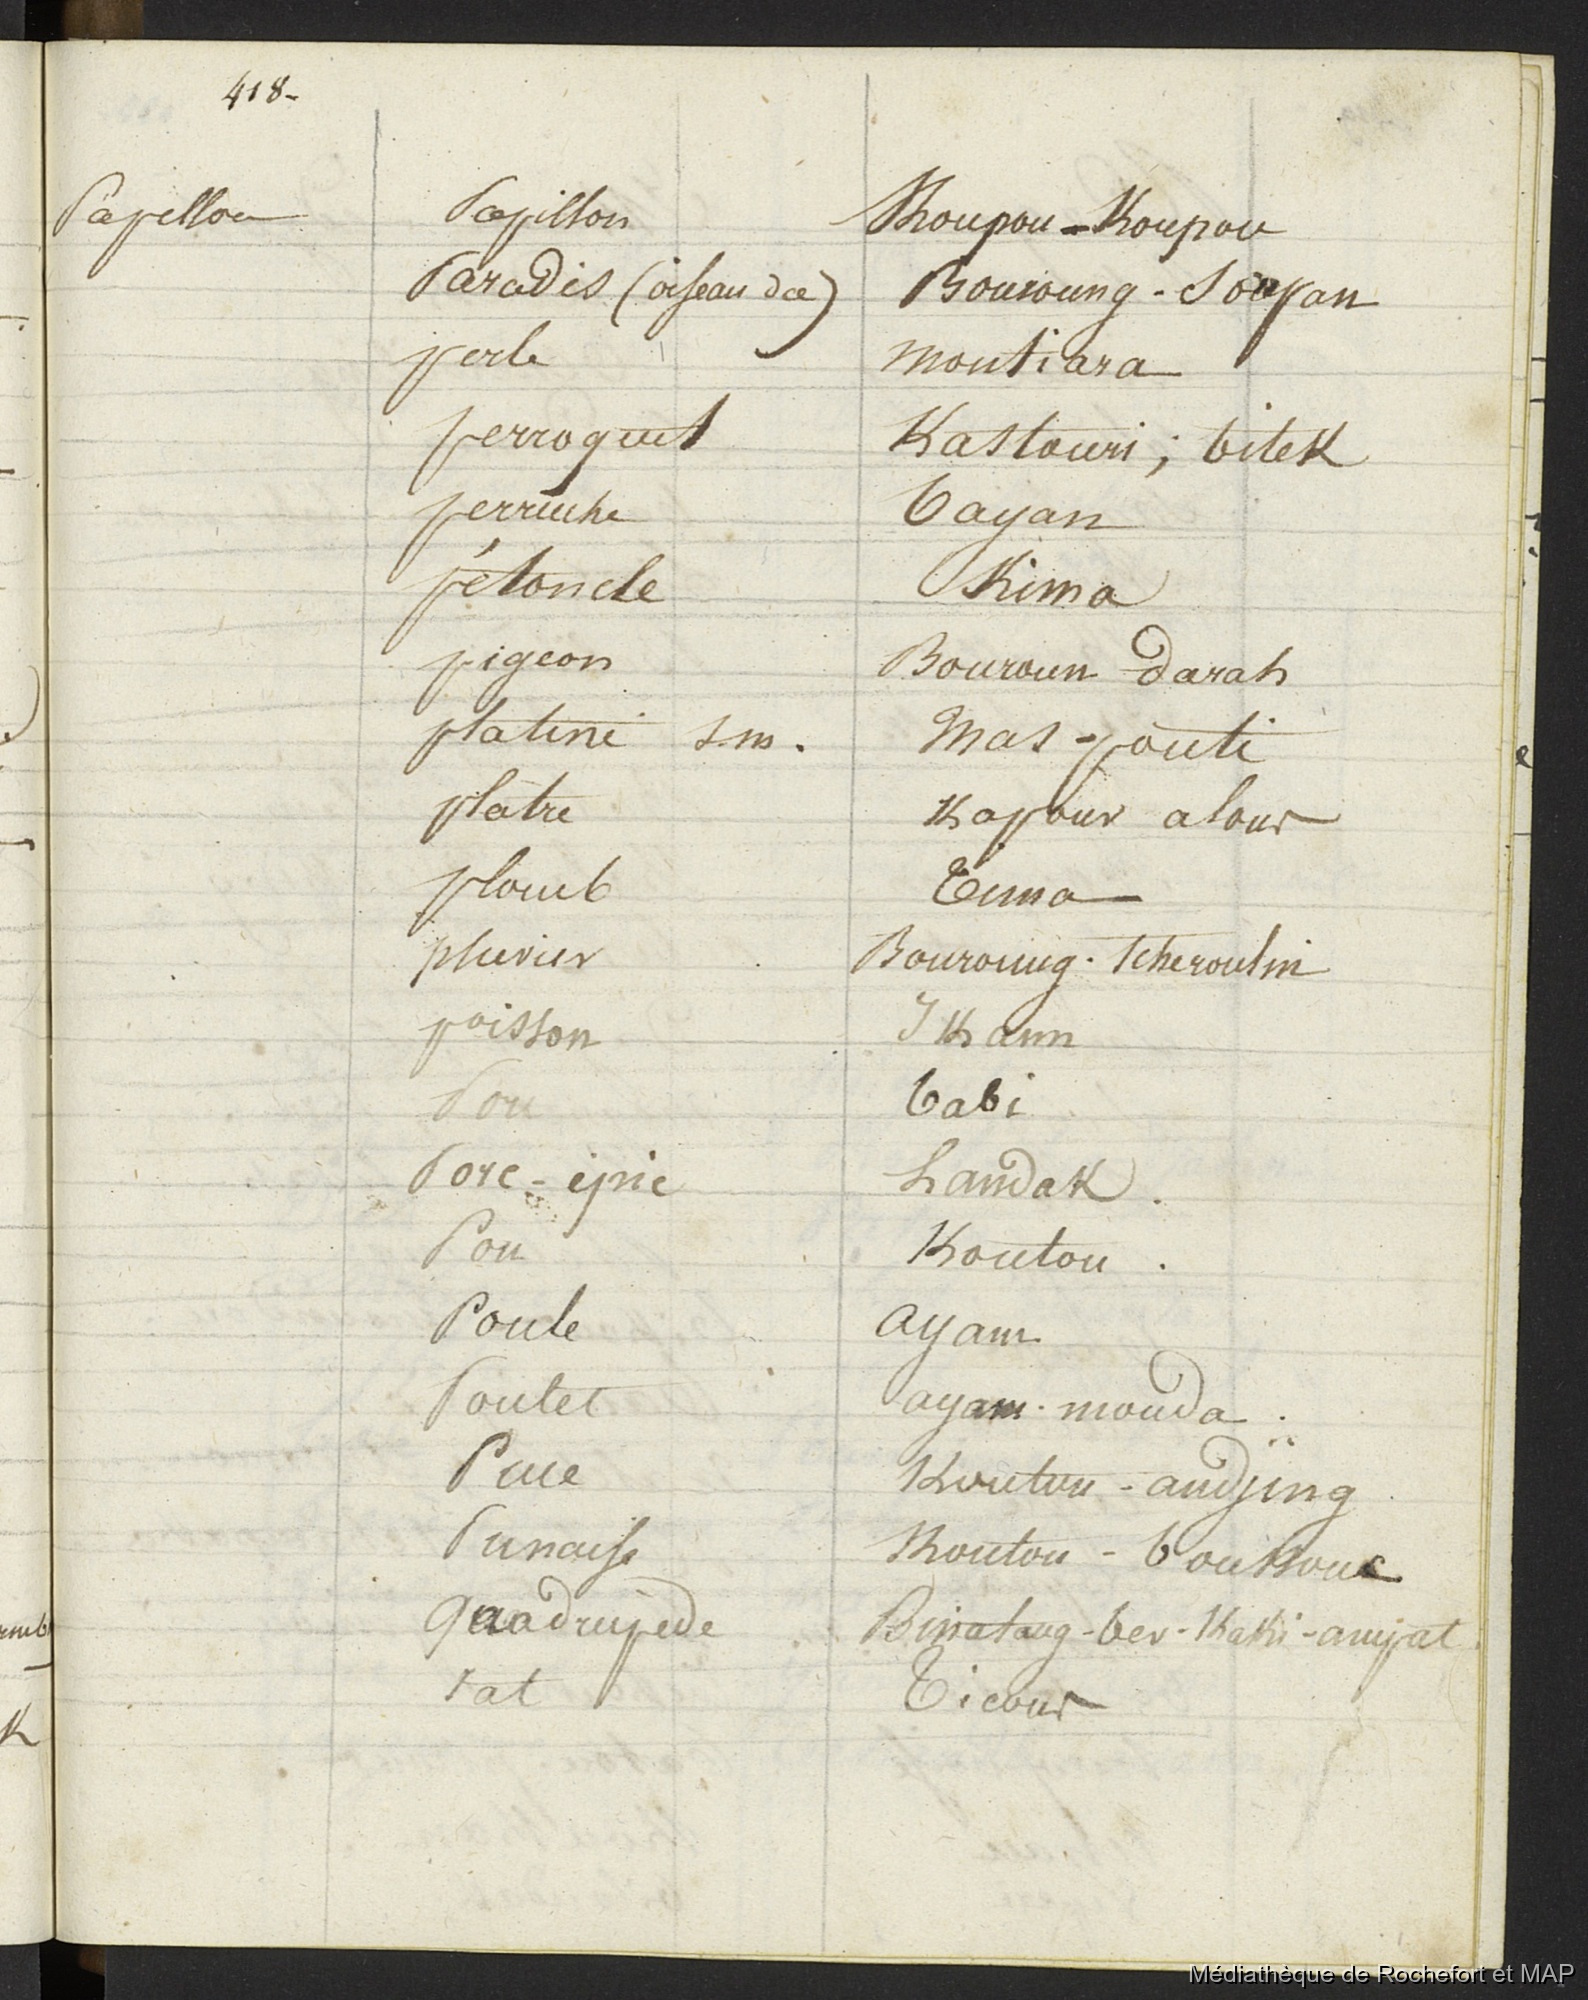 418-
Papillon Papillon Koupou-Koupou
Paradis (oiseau de) Bouroung-Soupan
perle moutiara
perroquet Kastouri; bitek
perruche bayan
pétoncle Kima
pigeon Bouroun darah
platine s.m. Mas-pouti
platre Kapour alour
plomb Tima
pluvier Bouroung-tcheroulin
poisson Ikann
Porc babi
Porc-épic Landak.
Pou Koutou.
Poule ayam
Poulet ayam-mouda.
Puce Koutou-andjing
Punaise Koutou-boussouc
quadrupède Binatang-ber-Kaki-ampat
rat Ticour
Médiathèque de Rochefort et MAP